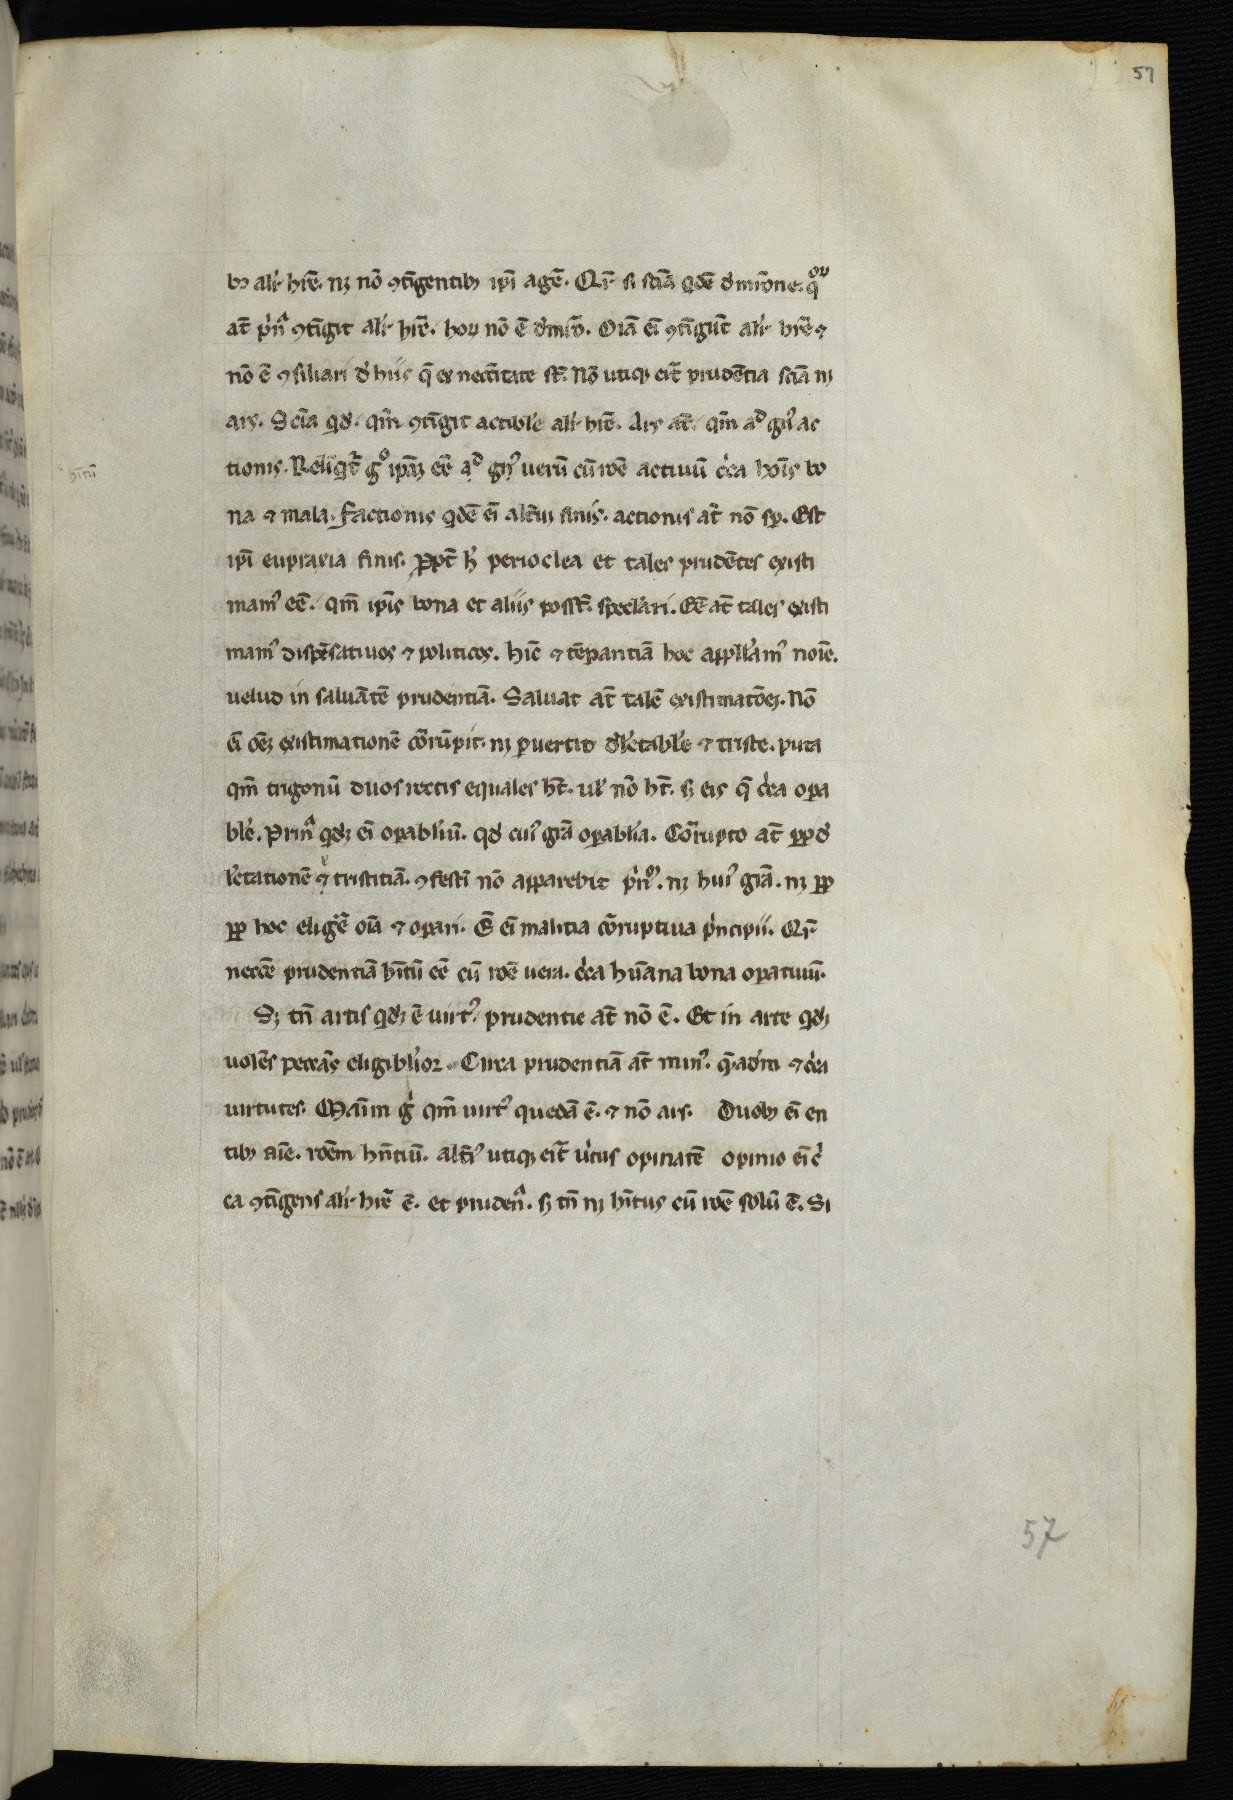 57
bꝫ alr̄ hr̄e. nꝫ nō ꝯtīgentibꝫ ip̄i agē. Qr̄ si sciā qdē d'mr̄one. qoꝝ
at̄ pͥnᵃ ꝯtīgit alr̄ hr̄e. hoꝝ nō ē d'mr̄o. Oīa ei̅ ꝯtīgūt alr̄ hr̄e ⁊
nō ē ꝯsiliari d' hiis q̄ ex nec̄citate st̄. Nō utiqꝫ erit̄ prudētia sciā nꝫ
ars. Scīa qd'. qm̄ ꝯtīgit actible ali' hr̄e. Ars at̄. qm̄ aᵈ gn̄ ac
tionis. Relīqt̄ gͦ ip̄aꝫ eē aᵈ gn̄ uerū cū rōe actiuū cͥca hoīs bo
hītū
na ⁊ mala. factionis qdē ei̅ altm̄ finis. actionis at̄ nō sp̄. Est
ip̄i eupraxia finis. ꝓpt̄ h' perioclea et tales prudētes existi
mamꝰ eē. qm̄ ip̄is bona et aliis posst̄ spec̄lari. Eē at̄ tales existi
mamꝰ dispēsatiuos ⁊ politicos. hīc ⁊ tēpantiā hoc appll'amꝰ noīe.
uelud in saluātē prudentiā. Saluat at̄ talē existimatōeꝫ. Nō
ei̅ oēꝫ existimationē cōrūpit. nꝫ ꝑuertit d'lectable ⁊ triste. puta
qm̄ trigonū duos rectis equales ht̄. ul' nō ht̄. sꝫ eis q̄ cͥca opa
ble. Prinᵃ qdꝫ ei̅ opabliū. qd cuiꝰ grā opablia. Corrupto at̄ ꝓp d'
lectationē ⁊ tristitiā. ꝯfestī nō apparebit pͥnᵐ. nꝫ huiꝰ grā. nꝫ ꝓp
ꝓp hoc eligēr oīa ⁊ opari. Ē ei̅ malitia cōruptiua pͥncipii. Qr̄
necc̄e prudentiā hītū eē cū rōe uera. cͥca hūana bona opatiuū.
Sꝫ tn̄ artis qdꝫ ē uirtꝰ. prudentie at̄ nō ē. Et in arte qdꝫ
uolēs peccās eligiblior. Circa prudentiā at̄ minꝰ. q̄adm̄ ⁊ cͥca
uirtutes. Maīm gͥ qm̄ uirtꝰ quedā ē. ⁊ nō ars. Duobꝫ ei̅ en
tibꝫ aīe. roēm hn̄tiū. altīꝰ utiqꝫ erit̄ uͥtus opinatē opinio ei̅ cͥ
ca ꝯtīgens alr̄ hr̄e ē. et prudenᵃ. sꝫ tn̄ nꝫ hītus cū rōe solū ē. Si
57